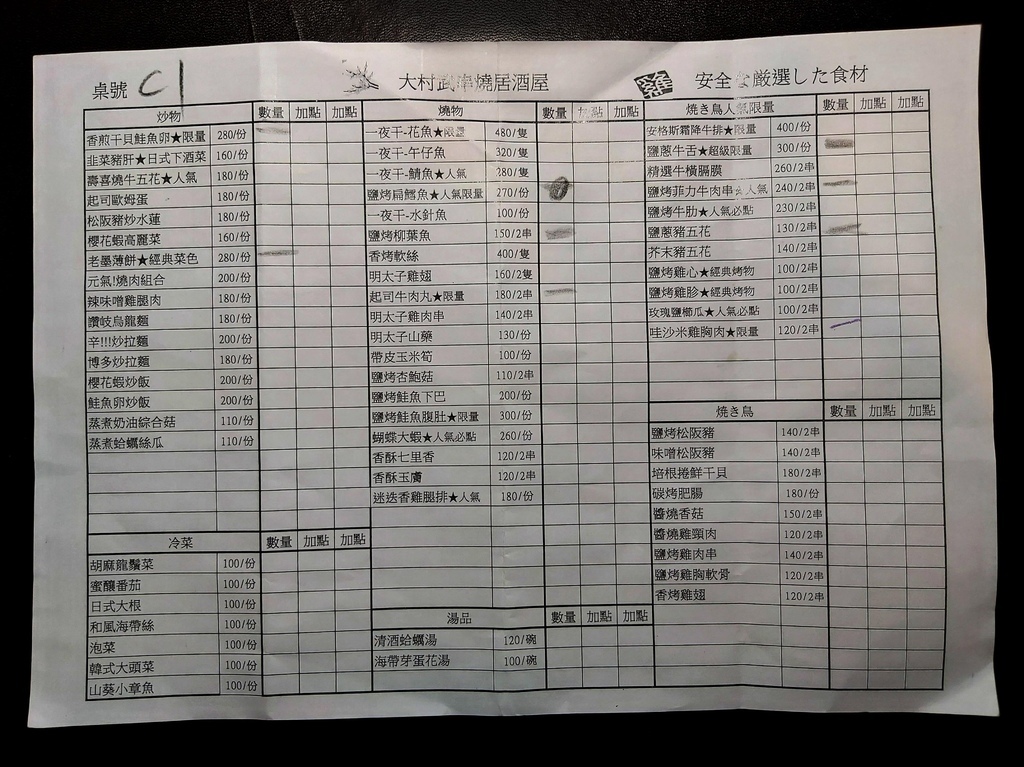 桌號 C1
大村武串燒居酒屋
安全な厳選した食材
炒物 數量 加點 加點
香煎干貝鮭魚卵★限量 280/份
韭菜豬肝★日式下酒菜 160/份
壽喜燒牛五花★人氣 180/份
起司歐姆蛋 180/份
松阪豬炒水蓮 180/份
櫻花蝦高麗菜 160/份
老墨薄餅★經典菜色 280/份
元氣!燒肉組合 200/份
辣味噌雞腿肉 180/份
讚岐烏龍麵 180/份
辛!!!炒拉麵 200/份
博多炒拉麵 180/份
櫻花蝦炒飯 200/份
鮭魚卵炒飯 200/份
蒸煮奶油綜合菇 110/份
蒸煮蛤蠣絲瓜 110/份
冷菜 數量 加點 加點
胡麻龍鬚菜 100/份
蜜釀番茄 100/份
日式大根 100/份
和風海帶絲 100/份
泡菜 100/份
韓式大頭菜 100/份
山葵小章魚 100/份
燒物 數量 加點 加點
一夜干-花魚★限量 480/隻
一夜干-午仔魚 320/隻
一夜干-鯖魚★人氣 280/隻
鹽烤扁鱈魚★人氣限量 270/份
一夜干-水針魚 100/份
鹽烤柳葉魚 150/2串
香烤軟絲 400/隻
明太子雞翅 160/2隻
起司牛肉丸★限量 180/2串
明太子雞肉串 140/2串
明太子山藥 130/份
帶皮玉米筍 100/份
鹽烤杏鮑菇 110/2串
鹽烤鮭魚下巴 200/份
鹽烤鮭魚腹肚★限量 300/份
蝴蝶大蝦★人氣必點 260/份
香酥七里香 120/2串
香酥玉膚 120/2串
迷迭香雞腿排★人氣 180/份
湯品 數量 加點 加點
清酒蛤蠣湯 120/碗
海帶芽蛋花湯 100/碗
焼き鳥人氣限量 數量 加點 加點
安格斯霜降牛排★限量 400/份
鹽蔥牛舌★超級限量 300/份
精選牛橫膈膜 260/2串
鹽烤菲力牛肉串★人氣 240/2串
鹽烤牛肋★人氣必點 230/2串
鹽蔥豬五花 130/2串
芥末豬五花 140/2串
鹽烤雞心★經典烤物 100/2串
鹽烤雞胗★經典烤物 100/2串
玫瑰鹽櫛瓜★人氣必點 100/2串
哇沙米雞胸肉★限量 120/2串
焼き鳥 數量 加點 加點
鹽烤松阪豬 140/2串
味噌松阪豬 140/2串
培根捲鮮干貝 180/2串
碳烤肥腸 180/份
醬燒香菇 150/2串
醬燒雞頸肉 120/2串
鹽烤雞肉串 140/2串
鹽烤雞胸軟骨 120/2串
香烤雞翅 120/2串